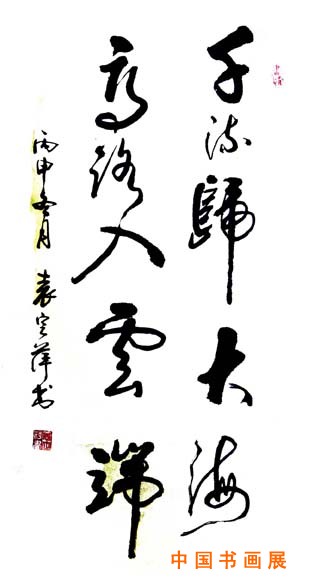 千流歸大海
高路入雲端
丙申冬月 袁定萍书
中国书画展